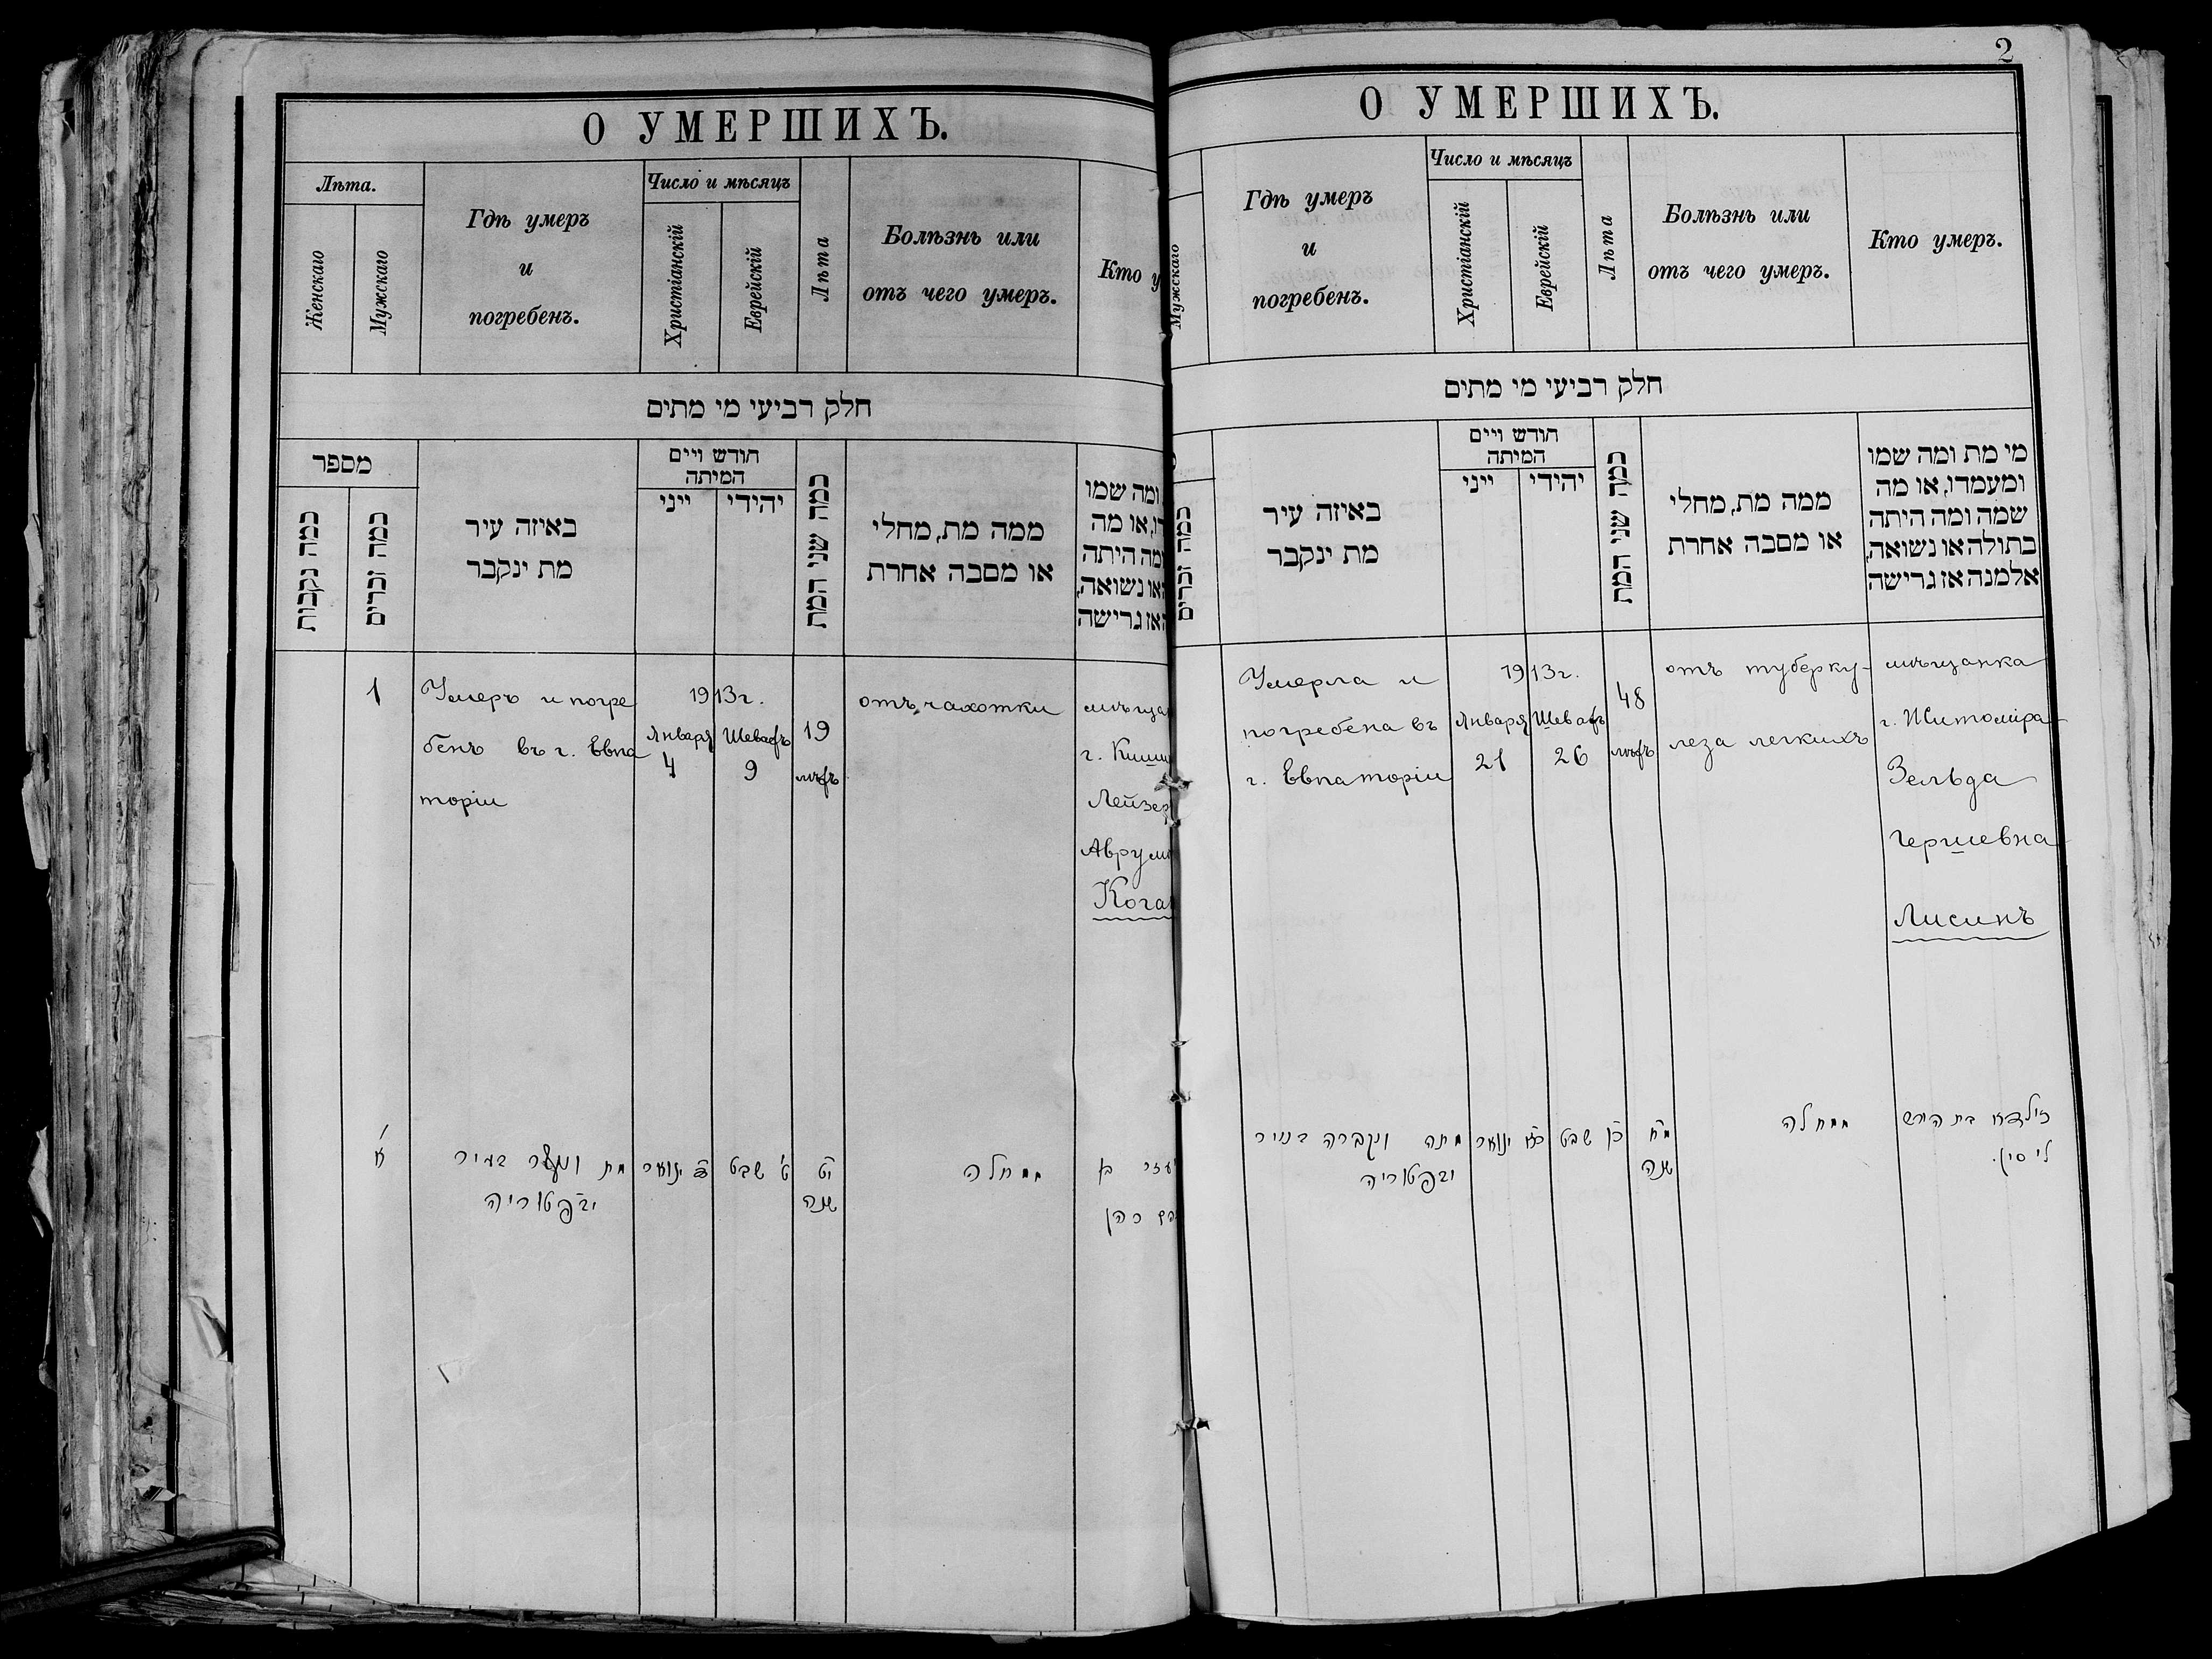 О УМЕРШИХЪ.
Лѣта.
Женскаго
Мужскаго
Гдѣ умеръ
и
погребенъ.
Число и мѣсяцъ
Христіанскій
Еврейскій
Лѣта
Болѣзнь или
отъ чего умеръ.
Кто у
חלק רביעי מי מתים
מספר
כמה נקבות
כמה זכרים
באיזה עיר
מת ינקבר
חודש ויים
המיתה
ייני
יהידי
כמה שני המת
ממה מת, מחלי
או מסבה אחרת
ומה שמו
דו, או מה
ומה היתה
או נשואה,
אז גרישה
1
Умеръ и погре
бенъ въ г. Евпа
торіи
1913г.
Января
4
Шеватъ
9
19
лѣтъ
отъ чахотки
мѣщан
г. Киши
Лейзер
Аврумо
Кога
א
מת ונקבר בעיר
יבפטוריה
ינואר
ט' שבט
יט
שנה
ממחלה
עזר בן
כהן
2
О УМЕРШИХЪ.
Мужскаго
Гдѣ умеръ
и
погребенъ.
Число и мѣсяцъ
Христіанскій
Еврейскій
Лѣта
Болѣзнь или
отъ чего умеръ.
Кто умеръ.
חלק רביעי מי מתים
כמה זכרים
באיזה עיר
מת ינקבר
חודש ויים
המיתה
ייני
יהידי
כמה שני המת
ממה מת, מחלי
או מסבה אחרת
מי מת ומה שמו
ומעמדו, או מה
שמה ומה היתה
בתולה או נשואה,
אלמנה אז גרישה
Умерла и
погребена въ
г. Евпаторіи
1913г.
Января
21
Шеватъ
26
48
лѣтъ
отъ туберку-
леза легкихъ
мѣщанка
г. Житоміра
Зельда
Гершевна
Лисинъ
מתה ונקברה בעיר
יבפטוריה
כא ינואר
כו שבט
מח
שנה
ממחלה
זילדא בת הירש
ליסין.